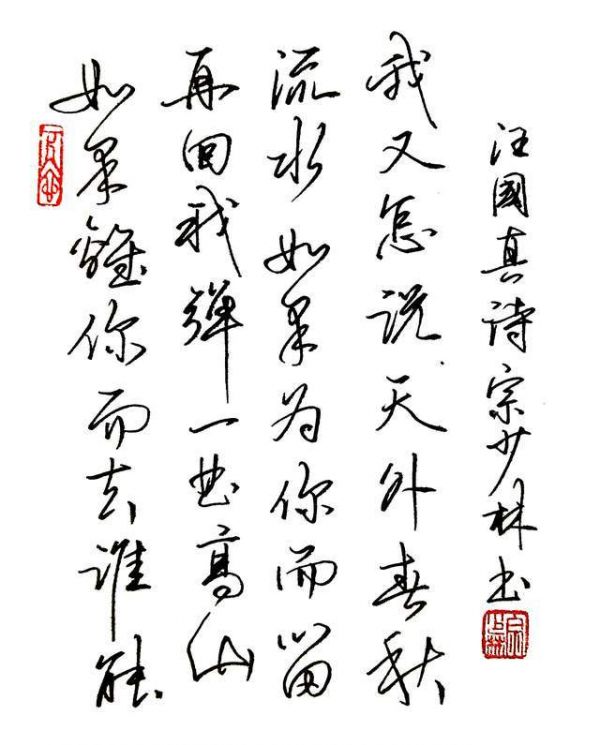 如果離你而去谁能
再回我彈一曲高山
流水如果为你而留
我又怎说天外春秋
汪國真诗宗少林书